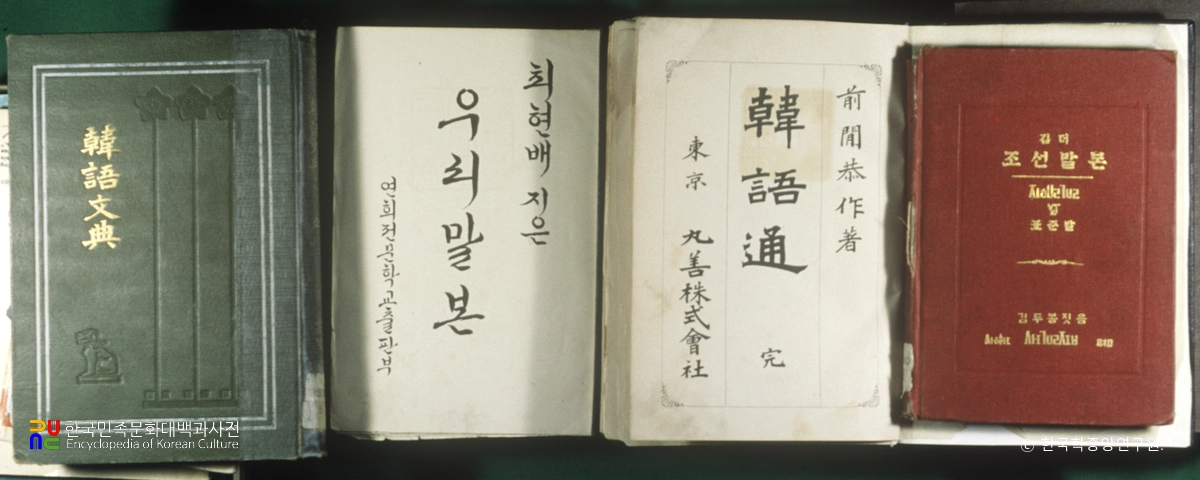 韓語文典
최현배 지은
우리말본
연희전문학교출판부
前間恭作著
韓語通
完
東京 丸善株式會社
깁더
조선말본
표준말
김두봉짓음
한국민족문화대백과사전
Encyclopedia of Korean Culture
© 한국학중앙연구원.